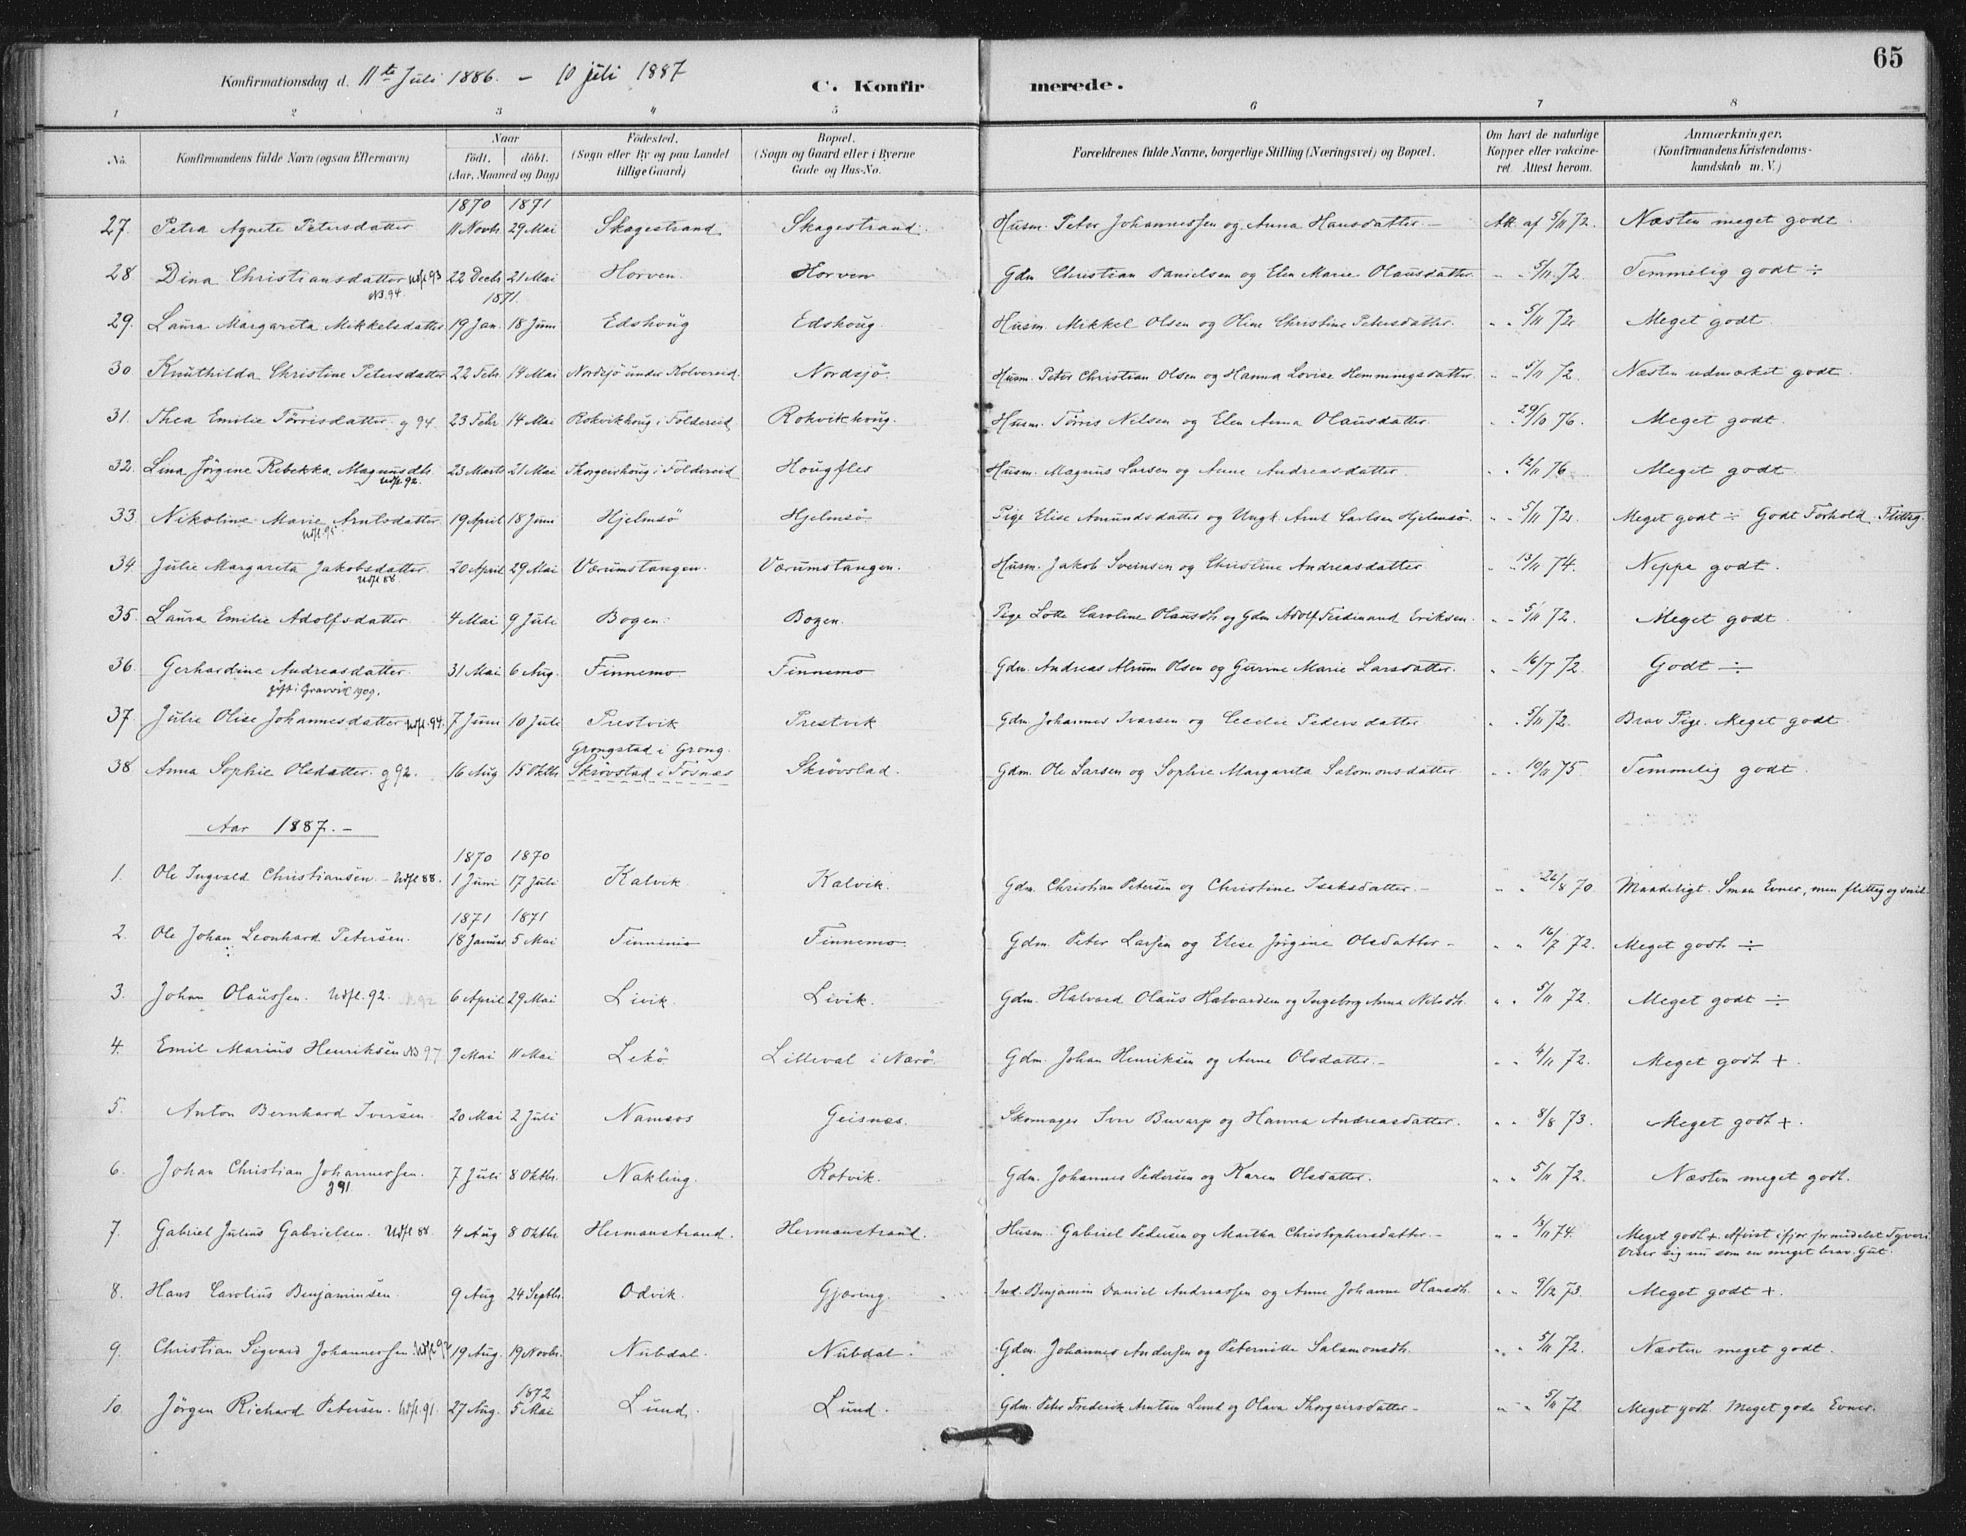 65
Konfirmationsdag d. 11te Juli 1886. – 10 juli 1887
C. Konfirmerede.
1 2 3 4 5 6 7 8
No. Konfirmandens fulde Navn (ogsaa Efternavn) Naar födt. döbt. (Aar, Maaned og Dag) Födested. (Sogn eller By og paa Landet tillige Gaard) Bopæl. (Sogn og Gaard eller i Byerne Gade og Hus-No. Forældrenes fulde Navne, borgerlige Stilling (Næringsvei) og Bopæl. Om havt de naturlige Kopper eller vakcineret. Attest herom. Anmærkninger. (Konfirmandens Kristendomskundskab m. V.)
1870 1871
27. Petra Agnete Petersdatter 11 Novbr. 29 Mai Skagestrand Skagestrand. Husm. Peter Johannessen og Anna Hansdatter. – Att. af 5/11 72. Næsten meget godt.
28 Dina Christiansdatter Udfl. 93 22 Decbr 21 Mai Horven Horven Gdm Christian Danielsen og Elen Marie Olausdatter " " 5/11 72. Temmelig godt ÷
N3.94. 1871.
29. Laura Margareta Mikkelsdatter 19 Jan. 18 Juni Edshoug Edshoug Husm. Mikkel Olsen og Oline Christine Petersdatter. " " 5/11 72. Meget godt.
30 Knuthilda Christine Petersdatter 22 Febr. 14 Mai Nordsjö under Kolvereid. Nordsjö. Husm. Peter Christian Olsen og Hanna Lovise Hemmingsdatter. " " 5/11 72. Næsten udmærket godt.
31. Thea Emilie Törrisdatter g 94. 23 Febr 14 Mai Rokvikhoug i Foldereid Rokvikhoug. Husm. Törris Nilsen og Elen Anna Olausdatter. " 29/10 76. Meget godt.
32. Lina Jörgine Rebekka Magnusdtr. 23 Marts 21 Mai Thorgeirhoug i Foldereid Hougfles Husm. Magnus Larsen og Anne Andreasdatter. " 12/11 76. Meget godt.
Udfl. 92.
33. Nikoline Marie Arntsdatter 19 April 18 Juni Hjelmsö Hjelmsö. Pige Elise Amundsdatter og Ungk. Arnt Carlsen Hjelmsö. " " 5/11 72. Meget godt ÷ Godt Forhold. Flittig.
Udfl. 95.
34. Julie Margareta Jakobsdatter. 20 April 29 Mai Værumstangen. Værumstangen. Husm. Jakob Sveinsen og Christine Andreasdatter " 13/11 74. Neppe godt.
Udfl. 88
35. Laura Emilie Adolfsdatter 4 Mai 9 Juli Bogen. Bogen. Pige Lotte Caroline Olausdtr og Gdm Adolf Ferdinand Eriksen. " " 5/11 72. Meget godt.
36. Gerhardine Andreasdatter. 31 Mai 6 Aug. Finnemo Finnemo Gdm. Andreas Olsen og Gurine Marie Larsdatter. " 16/7 72. Godt ÷
gift i Gravvik 1909.
37. Julie Olise Johannesdatter Udfl. 94. 7 Juni 10 Juli Prestvik Prestvik Gdm. Johannes Ivarsen og Cecilie Pedersdatter " 5/11 72. Brav Pige. Meget godt.
Grongstad i Grong.
38 Anna Sophie Olsdatter. g 92. 16 Aug 15 Oktbr Skrövstad i Fosnæs Skrövstad. Gdm. Ole Larsen og Sophie Margarita Salomonsdatter " " 10/11 75. Temmelig godt.
Aar 1887. –
1870 1870
1. Ole Ingvald Christiansen. – Udfl 88. 1 Juni 17 Juli Kalvik Kalvik. Gdm. Christian Petersen og Christine Isaksdatter. – " " 26/8 70. Maadeligt. Smaa Evner, men flittig og snil.
1871 1871
2. Ole Johan Leonhard Petersen. 18 Januar 5 Mai Finnemo Finnemo Gdm. Peter Larsen og Elise Jörgine Olsdatter – " " 16/7 72. Meget godt ÷
3. Johan Olaussen. Udfl. 92. 6 April 29 Mai Livik Livik. Gdm. Halvard Olaus Halvardsen og Ingeborg Anna Nilsdtr. " " 5/11 72. Meget godt ÷
4. Emil Marius Henriksen N3 97 9 Mai 11 Mai Lekö Lilleval i Nærö. Gdm. Johan Henriksen og Anne Olsdatter. – " " 4/11 72. Meget godt +.
5. Anton Bernhard Iversen. 20 Mai 2 Juli Namsos Geisnæs. Skomager Iver Buvarp og Hanna Andreasdatter. " " 8/8 73. Meget godt +.
6. Johan Christian Johannessen. 7 Juli 8 Oktbr. Nakling. Rotvik. Gdm. Johannes Pedersen og Karen Olsdatter. " " 5/11 72. Næsten meget godt.
g 91.
7. Gabriel Julius Gabrielsen. Udfl 88. 4 Aug 8 Oktbr Hermanstrand. Hermanstrand. Husm. Gabriel Pedersen og Martha Christophersdatter. – " " 13/11 74. Meget godt + Afvist ifjor for meddelt Tyveri.
Viser sig nu som en meget brav Gut.
8. Hans Carolius Benjaminsen. 9 Aug 24 Septbr. Odvik. Gjæring. Ind. Benjamin Daniel Andreassen og Anne Johanne Hansdtr. " " 9/12 73. Meget godt +.
9. Christian Sigvard Johannessen. Udfl 92 19 Aug. 19 Novbr. Nubdal. Nubdal. Gdm. Johannes Andersen og Peternille Salamonsdtr. " " 5/11 72. Næsten meget godt.
1872
10. Jörgen Richard Petersen. Udfl. 91. 27 Aug. 5 Mai Lund. Lund. Gdm. Peter Frederik Arntsen Lund og Olava Thorgeirsdatter – " " 5/11 72. Meget godt. Meget gode Evner.